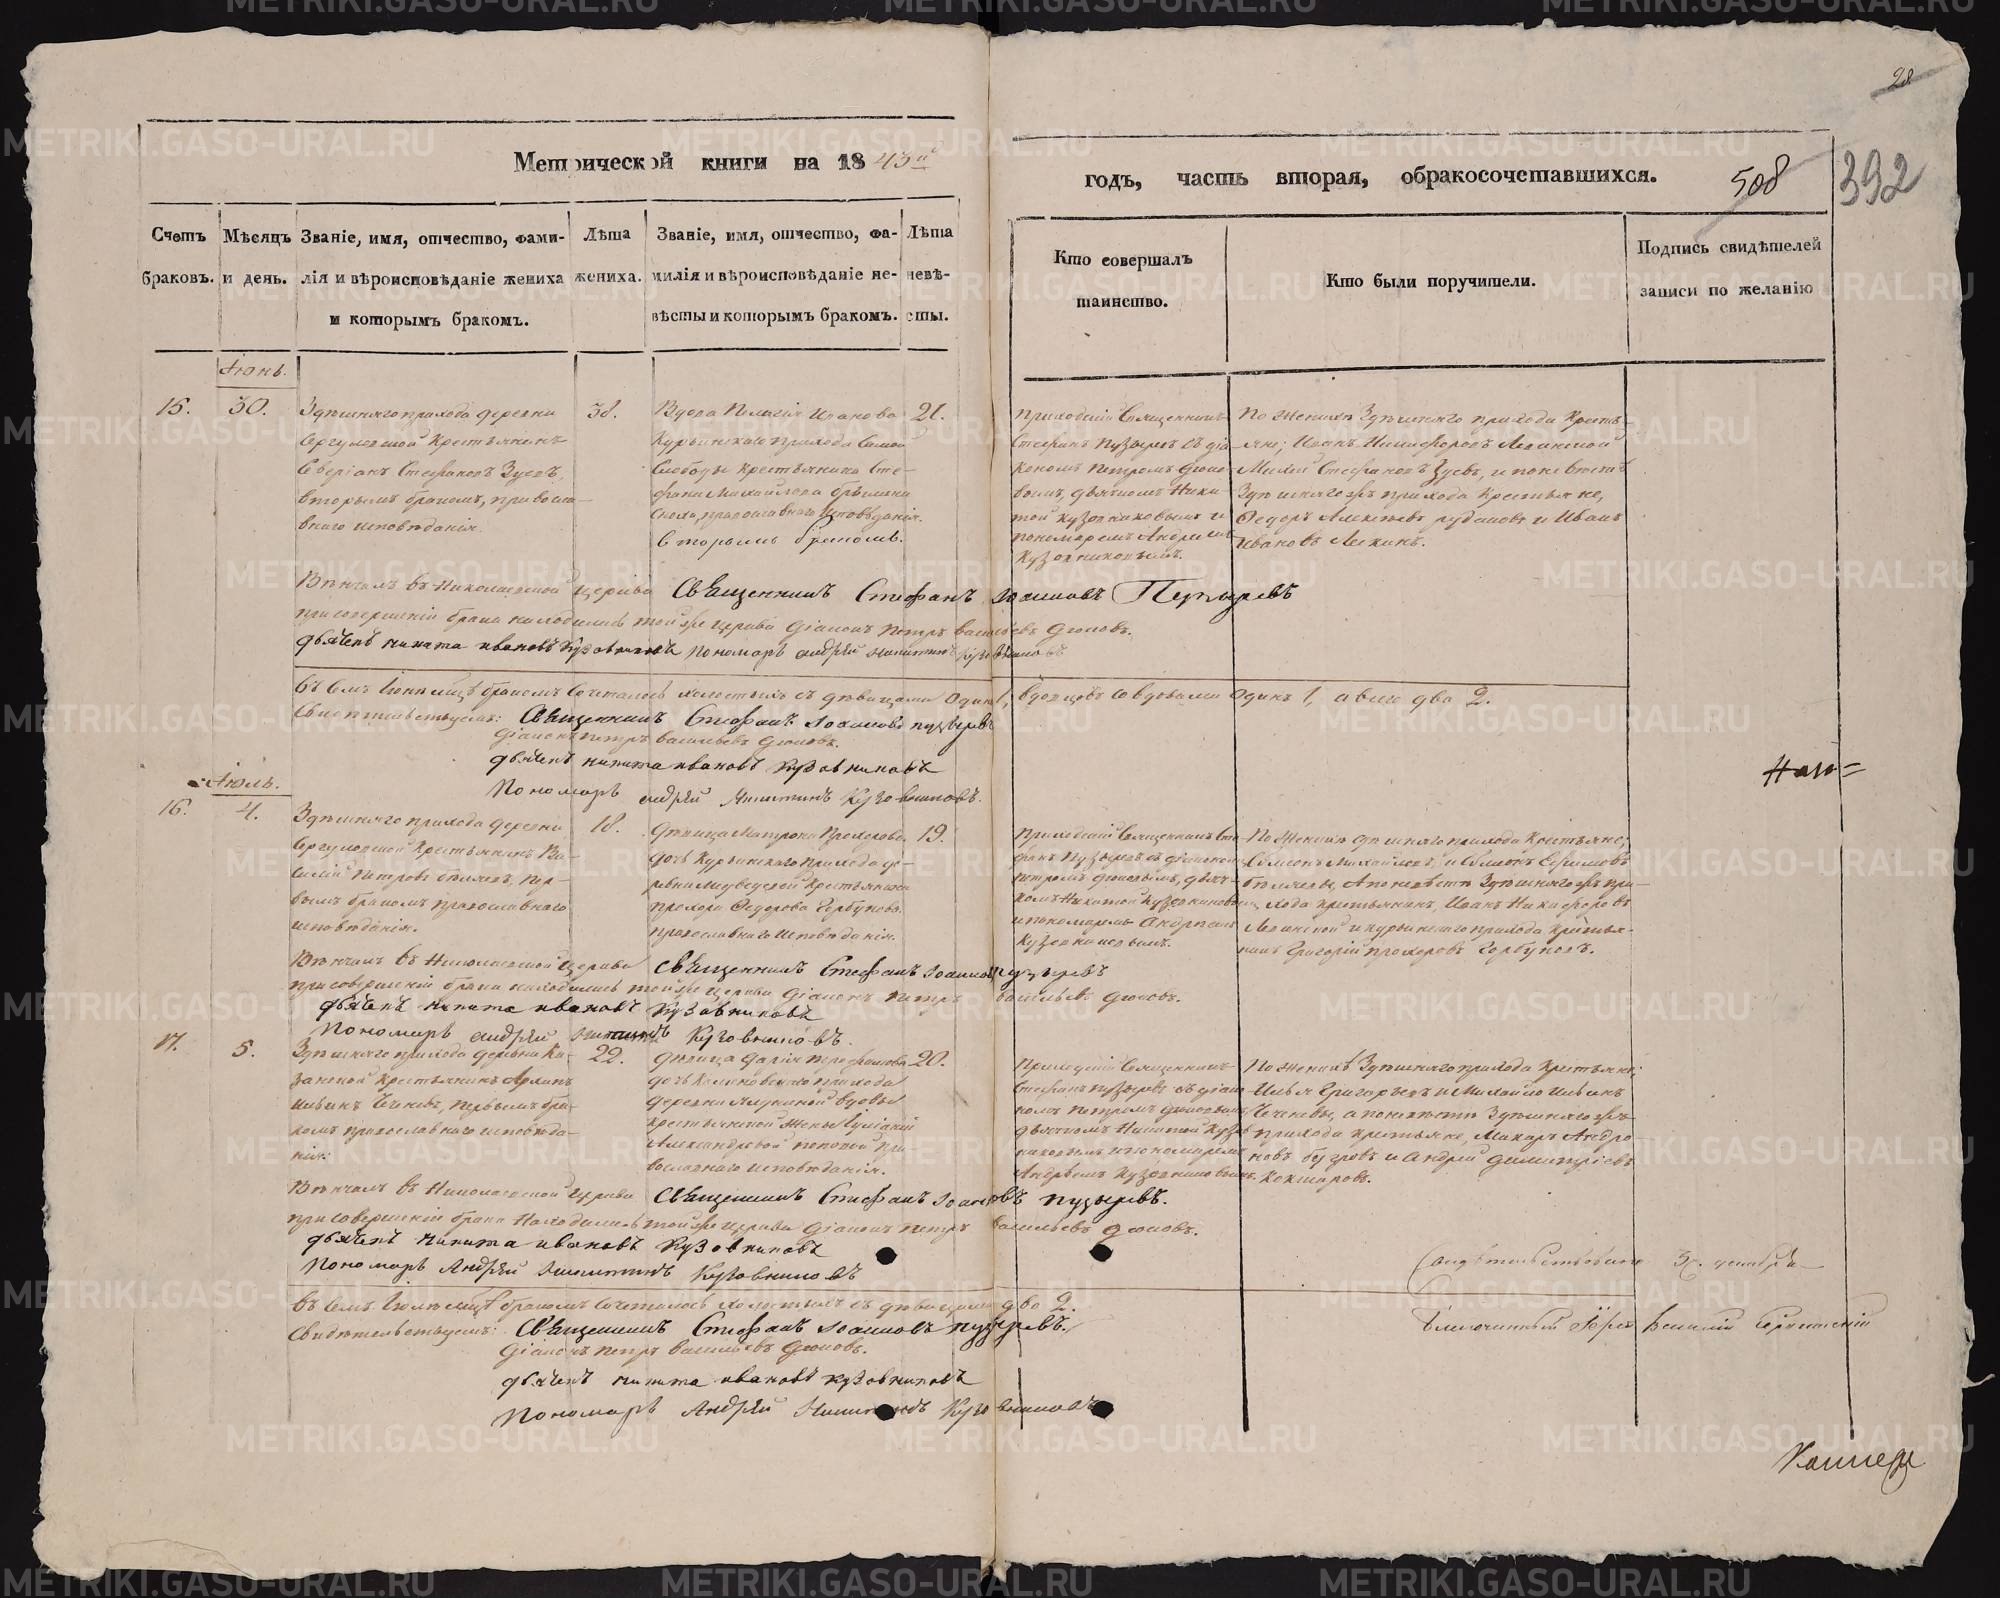 28
Метрической книги на 1843й
годъ, часть вторая, обракосочетавшихся.
508
392
Счетъ браковъ.
Мѣсяцъ и день.
Званіе, имя, отчество, фами-
лія и вѣроисповѣданіе жениха
и которымъ бракомъ.
Лѣта
жениха.
Званіе, имя, отчество, фа-
милія и вѣроисповѣданіе не-
вѣсты и которымъ бракомъ.
Лѣта
невѣ-
сты.
Кто совершалъ
таинство.
Кто были поручители.
Подпись свидѣтелей
записи по желанію
Іюнь.
15.
30.
Здѣшняго прихода деревни
крестьянинъ
Стефановъ Зуевъ,
вторымъ бракомъ, правосла-
внаго исповѣданія.
38.
Вдова Пелагія Иванова
Курьинскаго прихода самой
Слободы крестьянина Сте-
фана Михайлова
православнаго исповѣданія.
вторымъ бракомъ.
21.
Приходскій Священникъ
Стефанъ Пузыревъ съ діа-
кономъ Петромъ
дьячкомъ Ники-
той Кузовниковымъ и
пономаремъ Андреемъ
Кузовниковымъ.
По женихѣ Здѣшняго прихода Кресть-
яне; Иванъ Никифоровъ
Стефановъ Зуевъ, и по невѣстѣ
Здѣшняго жъ прихода Крестьяне,
Федоръ Алексѣевъ и Иванъ
Ивановъ
Вѣнчалъ въ Николаевской церкви Священникъ Стефанъ Іоанновъ Пузыревъ
при совершеніи брака находились той же церкви Діаконъ Петръ Васильевъ
дьячекъ Никита Ивановъ Кузовниковъ Пономарь Андрей Никитинъ Кузовниковъ
Въ семъ Іюнѣ мцѣ бракомъ сочеталось холостыхъ съ дѣвицами одинъ 1, вдовцовъ со вдовами одинъ 1, а всего два 2.
Свидѣтельствуемъ: Священникъ Стефанъ Іоанновъ Пузыревъ
Діаконъ Петръ Васильевъ
дьячекъ Никита Ивановъ Кузовниковъ
Пономарь Андрей Никитинъ Кузовниковъ.
Іюль.
16.
4.
Здѣшняго прихода деревни
Крестьянинъ Ва-
силій Петровъ Бѣляевъ, пер-
вымъ бракомъ православнаго
исповѣданія.
18.
Дѣвица Матрона Прохорова
дочь Курьинскаго прихода де-
ревни Медвѣдевой крестьянина
Прохора Федорова Горбунова.
православнаго исповѣданія.
19.
Приходскій Священникъ Сте-
фанъ Пузыревъ съ діакономъ
Петромъ дьяч-
комъ Никитой Кузовниковымъ
и пономаремъ Андреемъ
Кузовниковымъ.
По женихѣ здѣшняго прихода Крестьяне;
Михайловъ, и Ефимовъ
Бѣляевы, а по невѣстѣ здѣшняго жъ при-
хода крестьянинъ, Иванъ Никифоровъ
и Курьинскаго прихода крестья-
нинъ Григорій Прохоровъ Горбуновъ.
Вѣнчалъ въ Николаевской церкви Священникъ Стефанъ Іоанновъ Пузыревъ
при совершеніи брака находились той же церкви Діаконъ Петръ Васильевъ
дьячекъ Никита Ивановъ Кузовниковъ
Пономарь Андрей Никитинъ Кузовниковъ.
17.
5.
Здѣшняго прихода деревни Ка-
занской Крестьянинъ Архипъ
Ильинъ первымъ бра-
комъ православнаго исповѣда-
нія:
22.
дѣвица Дарія Трофимова
дочь прихода
деревни вдовы
крестьянской жены
Александровой Поповой пра-
вославнаго исповѣданія.
20.
Приходскій Священникъ
Стефанъ Пузыревъ съ діако-
номъ Петромъ
дьячкомъ Никитой Кузов-
никовымъ и пономаремъ
Андреемъ Кузовниковымъ.
По женихѣ Здѣшняго прихода Крестьяне;
Илья Григорьевъ и Михайло Ильинъ
а по невѣстѣ Здѣшняго жъ
прихода крестьяне, Макаръ Андро-
новъ Бугровъ и Андрей Димитріевъ
Кокшаровъ.
Вѣнчалъ въ Николаевской церкви Священникъ Стефанъ Іоанновъ Пузыревъ.
при совершеніи брака находились той же церкви Діаконъ Петръ Васильевъ
дьячекъ Никита Ивановъ Кузовниковъ
Пономарь Андрей Никитинъ Кузовниковъ
Въ семъ Іюлѣ мцѣ бракомъ сочеталось холостыхъ съ дѣвицами два 2.
Свидѣтельствуемъ: Священникъ Стефанъ Іоанновъ Пузыревъ.
Діаконъ Петръ Васильевъ
дьячекъ Никита Ивановъ Кузовниковъ
Пономарь Андрей Никитинъ Кузовниковъ
Свидѣтельствовано декабря
Благочинный Іерей Василій
METRIKI.GASO-URAL.RU